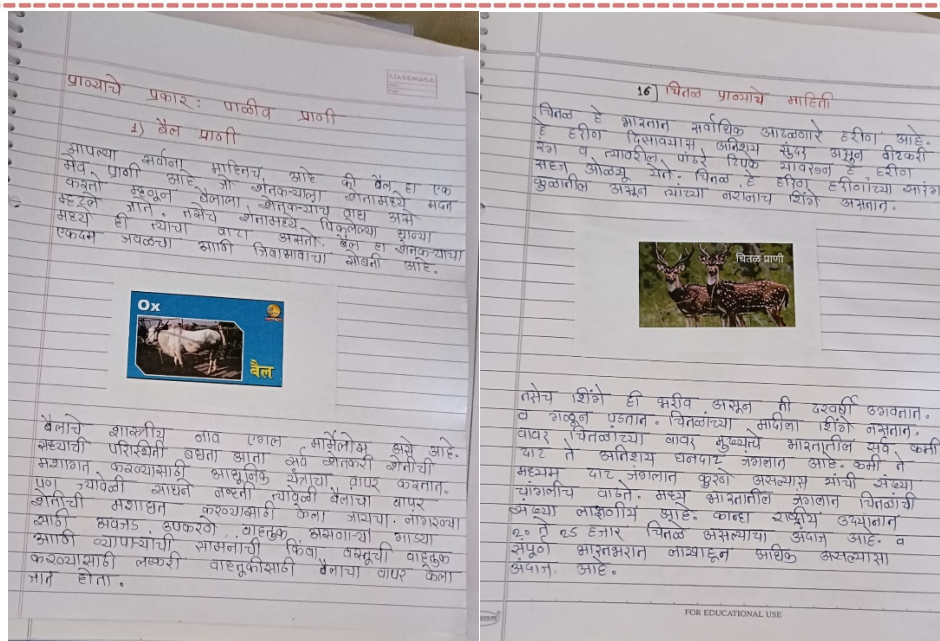 classmate
प्राण्याचे प्रकार: पाळीव प्राणी
1) बैल प्राणी
आपल्या सर्वांना माहितच आहे की बैल हा एक
मेव प्राणी आहे. जो शेतकऱ्याला शेतामध्ये मदत
करतो म्हणून बैलाला शेतकऱ्याचा राधा असे
म्हटले जाते. तसेच शेतामध्ये पिकलेल्या धान्या
मध्ये ही त्याचा वाटा असतो. बैल हा शेतकऱ्याचा
एकदम जवळचा आणि जिवाभावाचा सोबती आहे.
Ox
बैल
बैलाचे शास्त्रीय नाव एगल मार्मेलोस असे आहे.
सध्याची परिस्थिती बघता आता सर्व शेतकरी शेतीची
मशागत करण्यासाठी आधुनिक यंत्राचा वापर करतात.
पण ज्यावेळी साधने नव्हती त्यावेळी बैलाचा वापर
शेतीची मशागत करण्यासाठी केला जायचा. नांगरण्या
साठी अवजड उपकरणे, वाहतुक असणाऱ्या गाड्या
आणि व्यापाऱ्यांची सामनाची किंवा वस्तूची वाहतुक
करण्यासाठी लष्करी वाहतूकीसाठी बैलाचा वापर केला
जात होता.
16) चितळ प्राण्याचे माहिती
चितळ हे भारतात सर्वाधिक आढळणारे हरीण आहे.
हे हरीण दिसावयास अतिशय सुंदर असून वीटकरी
रंग व त्यावरील पांढरे टिपके यावरून हे हरीण
सहज ओळखू येते. चितळ हे हरिण हरीणांच्या सारंग
कुळातील असून त्यांच्या नरांनाच शिंगे असतात.
चितळ प्राणी
तसेच शिंगे ही भरीव असून ती दरवर्षी उगवतात.
व गळून पडतात. चितळाच्या मादीला शिंगे नसतात.
वावर चितळाच्या वावर मुख्यत्वे भारतातील सर्व कमी
दाट ते अतिशय घनदाट जंगलात आहे. कमी ते
मध्यम दाट जंगलात कुरणे असल्यास यांची संख्या
चांगलीच वाढते. मध्य भारतातील जंगलात चितळांची
संख्या लाक्षणीय आहे. कान्हा राष्ट्रीय उद्यानात
20 ते 25 हजार चितळ असल्याचा अंदाज आहे. व
संपूर्ण भारतभरात लाखाहून अधिक असल्यासा
अंदाज आहे.
FOR EDUCATIONAL USE